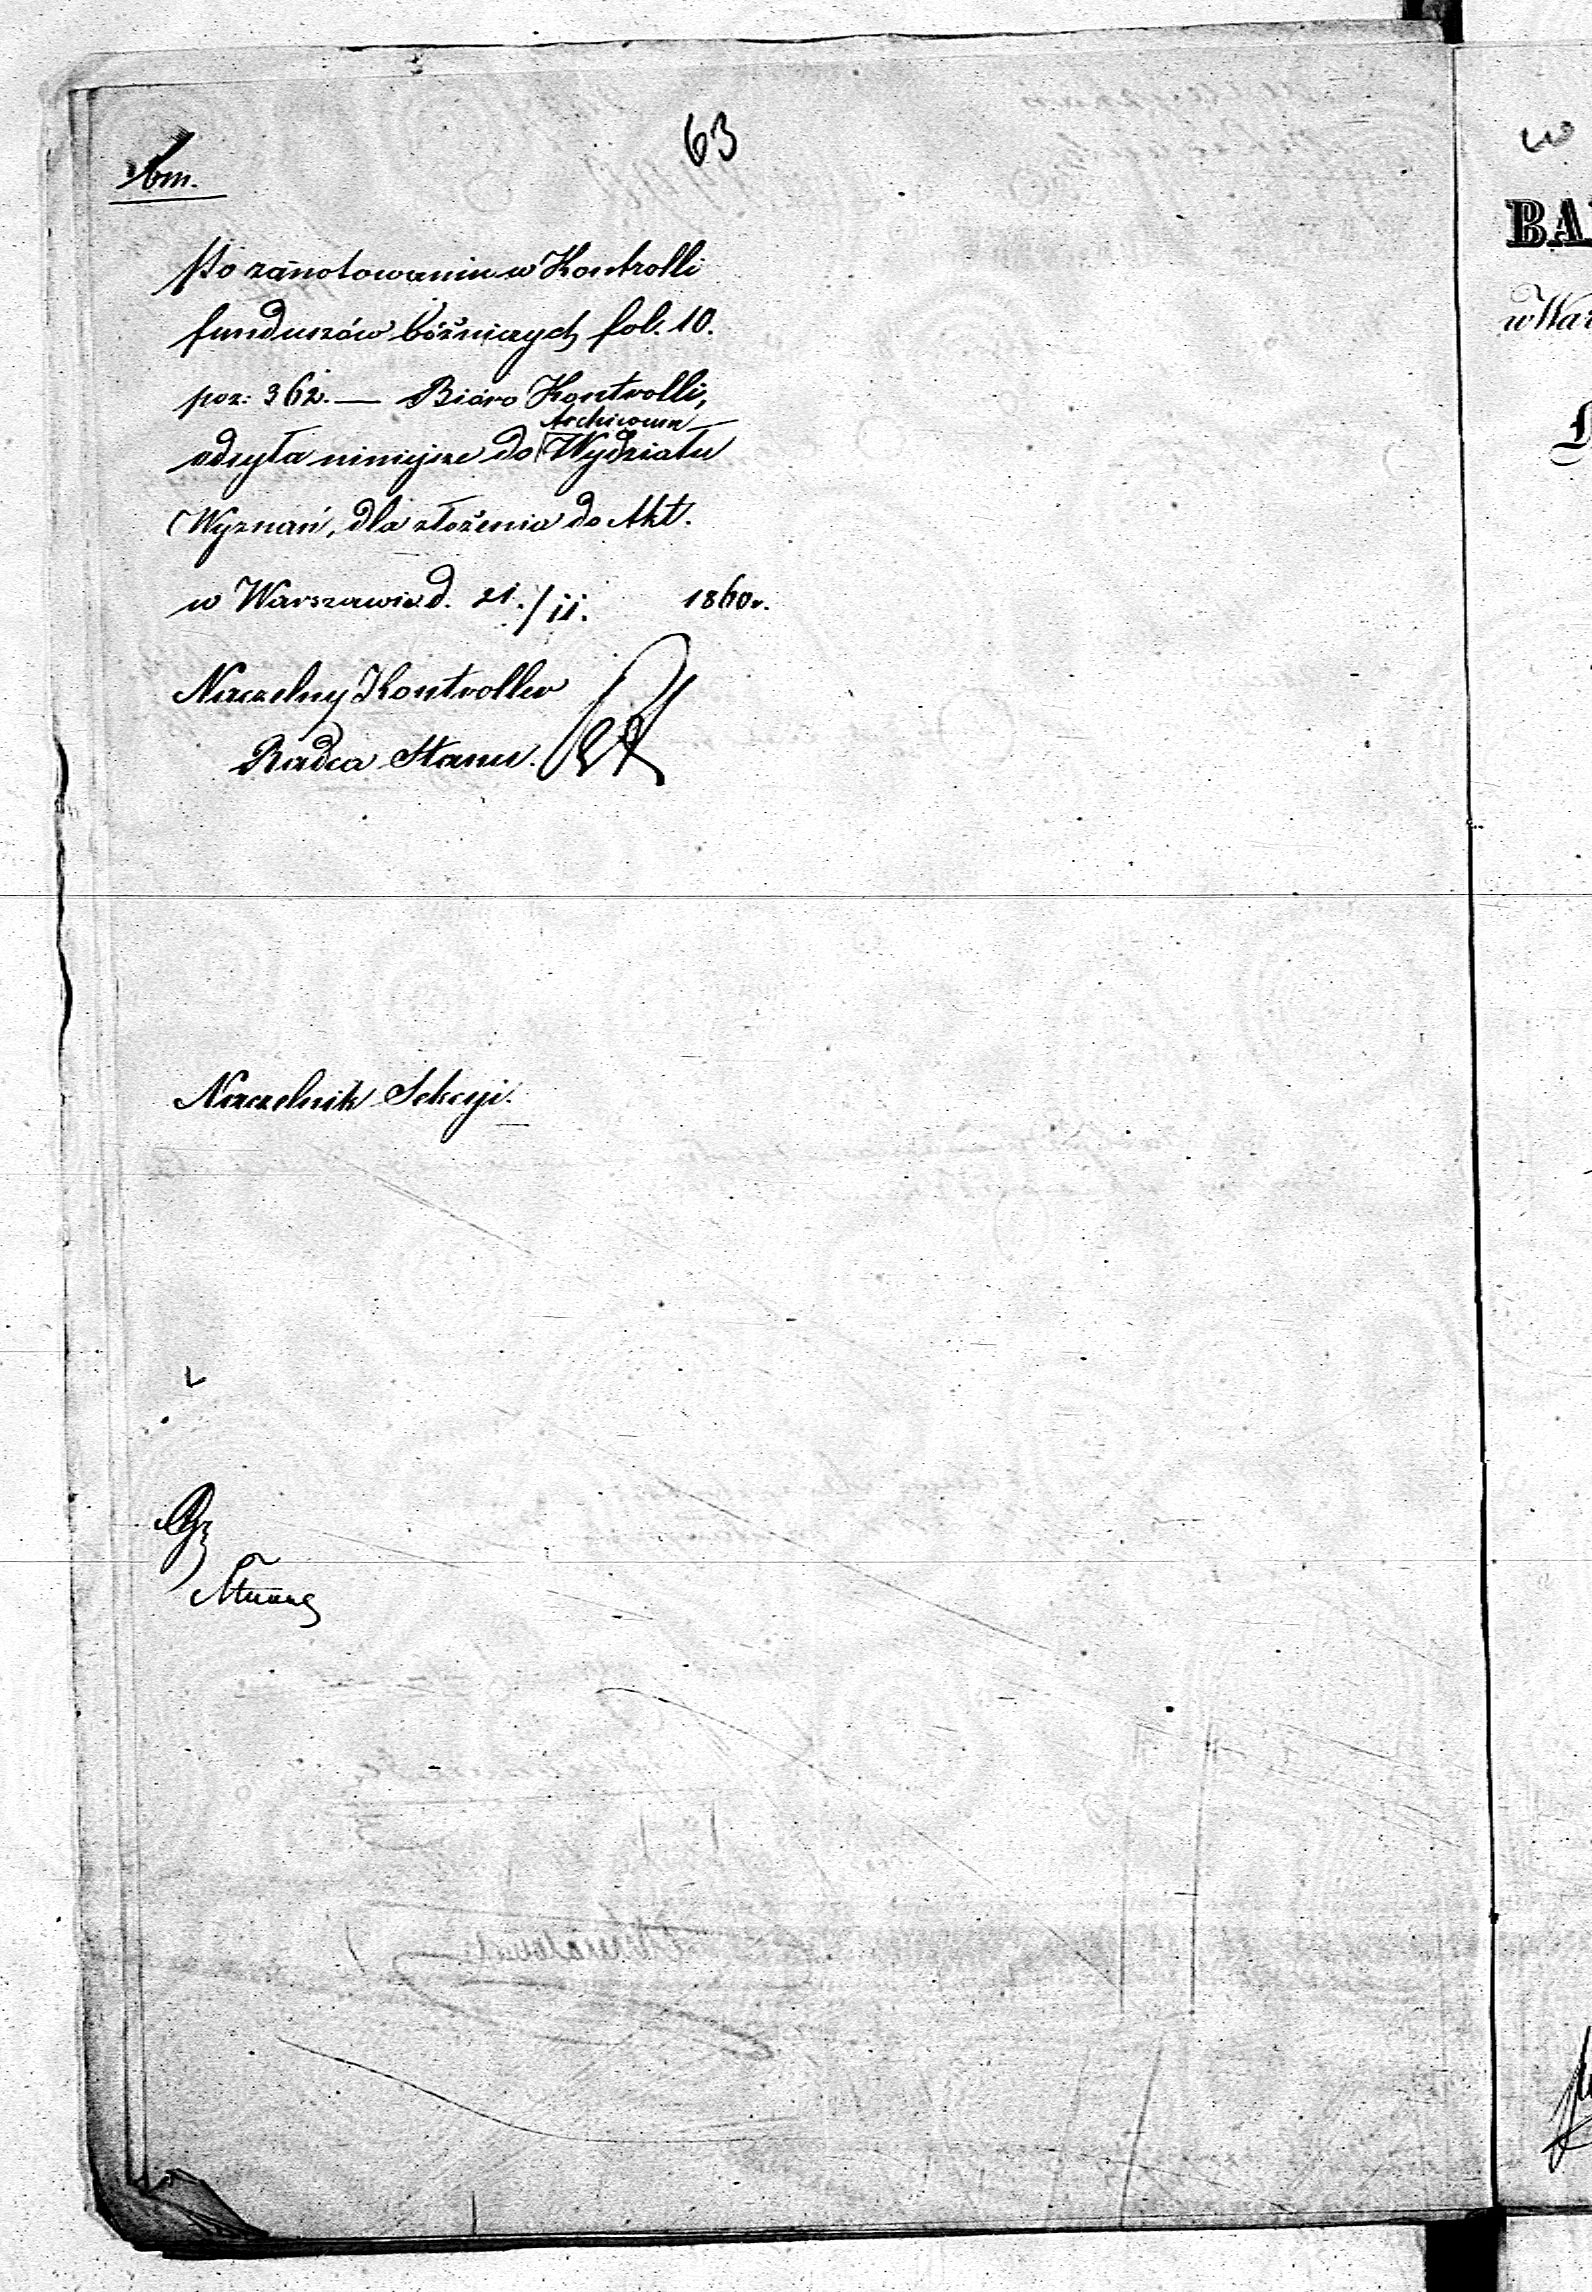 63
Po zanotowaniu w Kontrolli
funduszów bóżniczych fol. 10.
poz: 362. — Bióro Kontrolli,
Archiwum
odsyła niniejsze do Wydziału
Wyznań, dla złożenia do Akt.
w Warszawie d. 21./11. 1860 r.
Naczelny Kontroller
Radca Stanu.
Naczelnik Sekcyi.
w
BA
w War